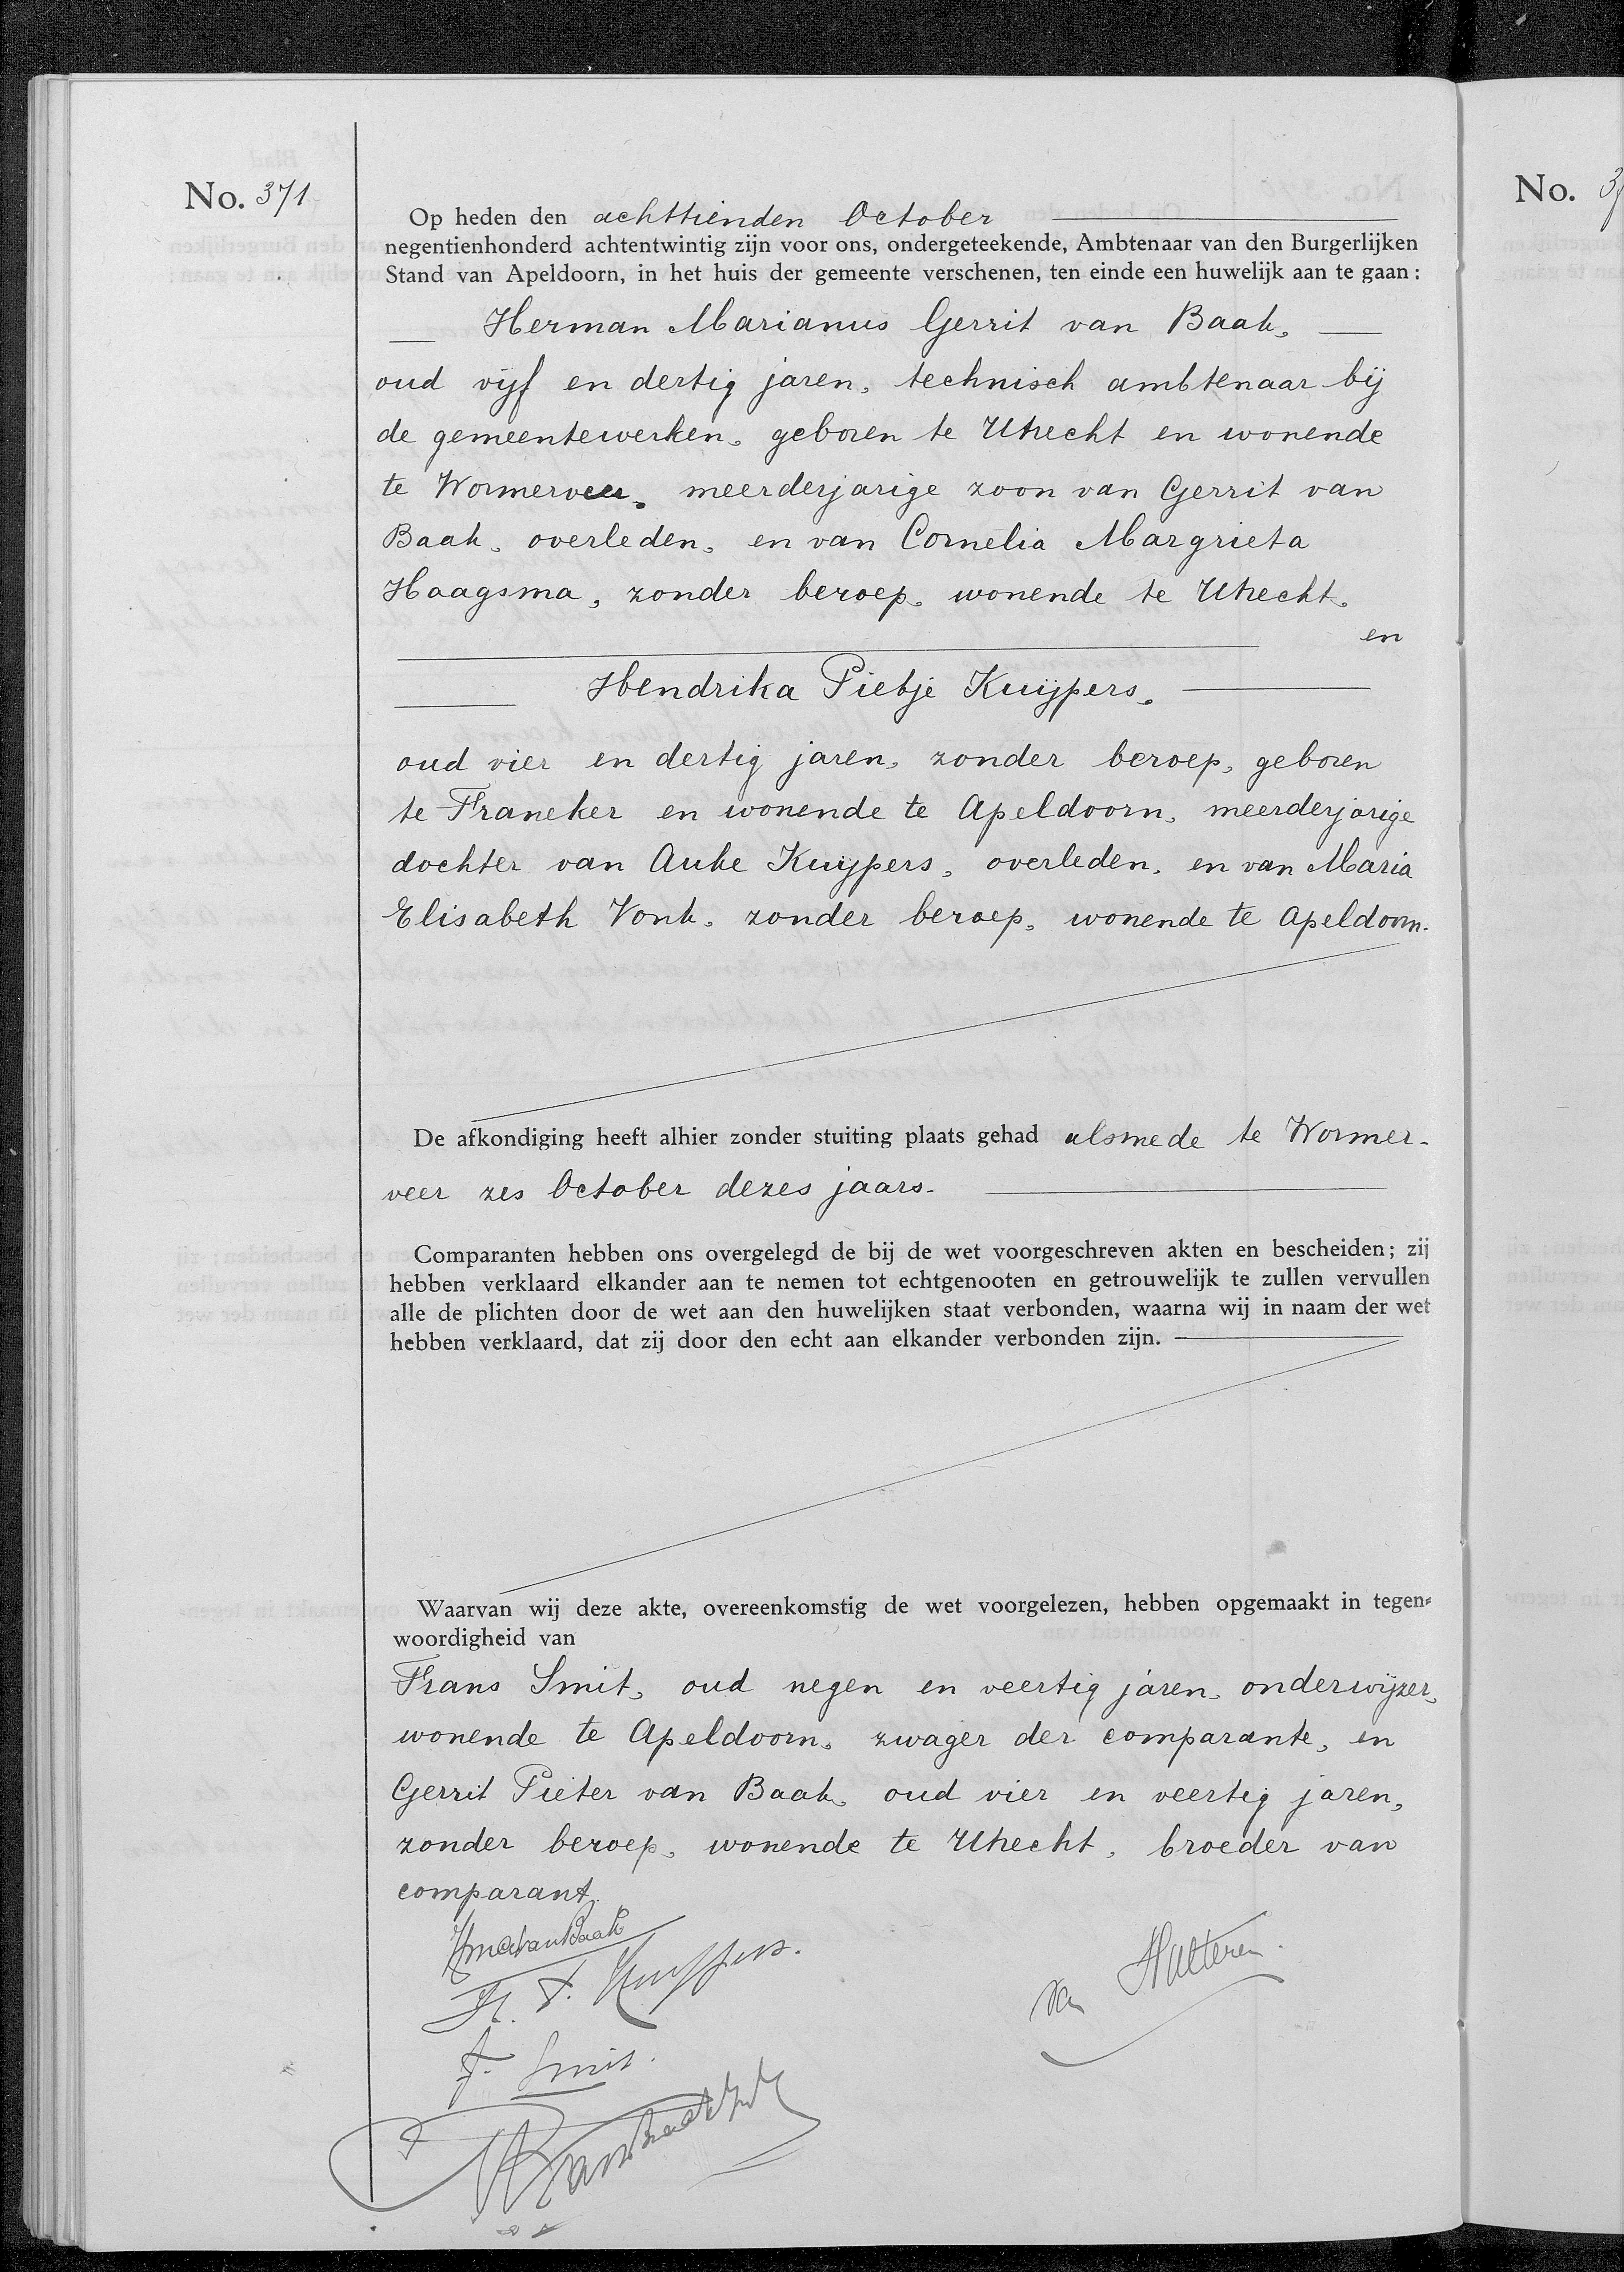 No. 371
Op heden den achttienden October
negentienhonderd achtentwintig zijn voor ons, ondergeteekende, Ambtenaar van den Burgerlijken
Stand van Apeldoorn, in het huis der gemeente verschenen, ten einde een huwelijk aan te gaan:
Herman Marianus Gerrit van Baak,
oud vijf en dertig jaren, technisch ambtenaar bij
de gemeentewerken, geboren te Utrecht en wonende
te Wormerveer, meerderjarige zoon van Gerrit van
Baak, overleden, en van Cornelia Margrieta
Haagsma, zonder beroep, wonende te Utrecht,
en
Hendrika Pietje Kuijpers,
oud vier en dertig jaren, zonder beroep, geboren
te Franeker en wonende te Apeldoorn, meerderjarige
dochter van Auke Kuijpers, overleden, en van Maria
Elisabeth Vonk, zonder beroep, wonende te Apeldoorn.
De afkondiging heeft alhier zonder stuiting plaats gehad alsmede te Wormer-
veer zes October dezes jaars.
Comparanten hebben ons overgelegd de bij de wet voorgeschreven akten en bescheiden; zij
hebben verklaard elkander aan te nemen tot echtgenooten en getrouwelijk te zullen vervullen
alle de plichten door de wet aan den huwelijken staat verbonden, waarna wij in naam der wet
hebben verklaard, dat zij door den echt aan elkander verbonden zijn.
Waarvan wij deze akte, overeenkomstig de wet voorgelezen, hebben opgemaakt in tegen-
woordigheid van
Frans Smit, oud negen en veertig jaren, onderwijzer,
wonende te Apeldoorn, zwager der comparante, en
Gerrit Pieter van Baak, oud vier en veertig jaren,
zonder beroep, wonende te Utrecht, broeder van
comparant.
H. P. Kuijpers.
F. Smit.
No.